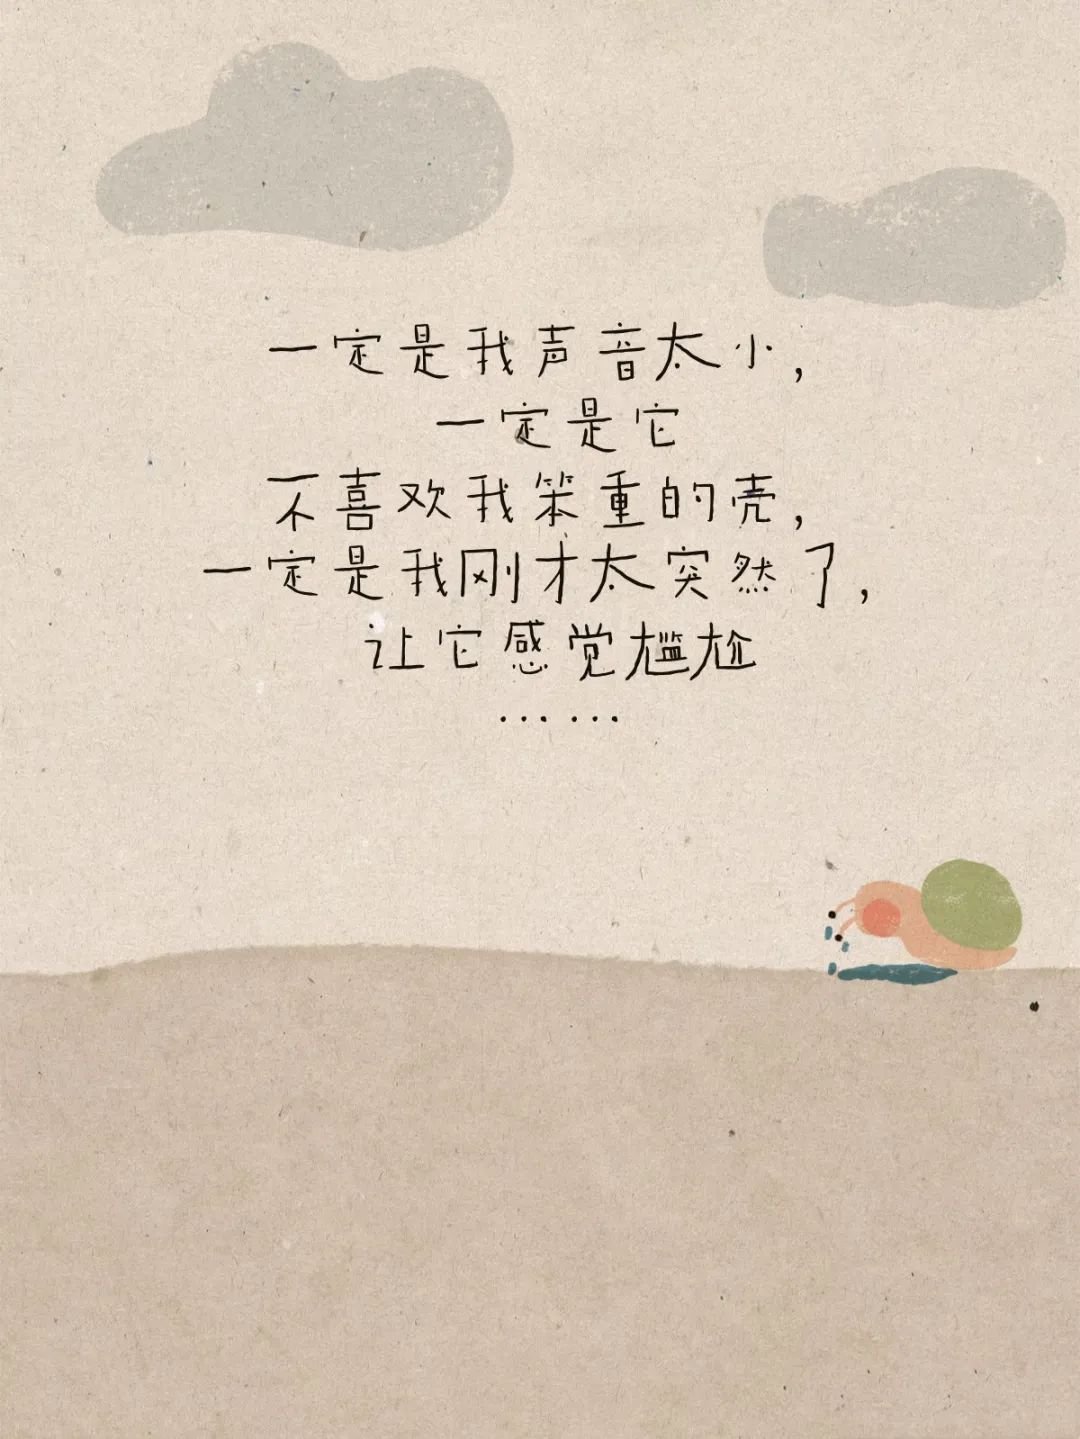 一定是我声音太小，
一定是它
不喜欢我笨重的壳，
一定是我刚才太突然了，
让它感觉尴尬
……